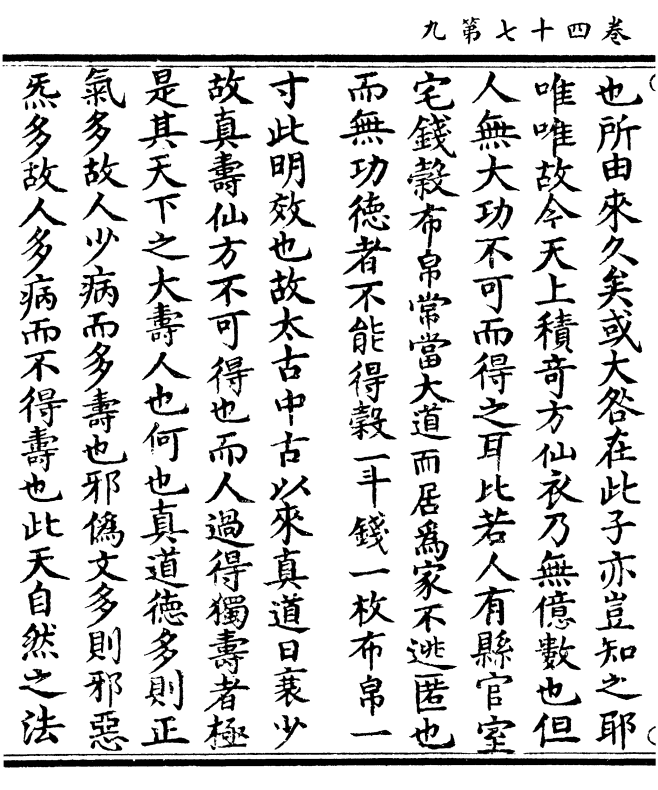 卷四十七第九
也所由來久矣或大咎在此子亦豈知之耶
唯唯故今天上積奇方仙衣乃無億數也但
人無大功不可而得之耳比若人有縣官室
宅錢穀布帛常當大道而居爲家不逃匿也
而無功德者不能得穀一斗錢一枚布帛一
寸此明效也故太古中古以來真道日衰少
故真壽仙方不可得也而人過得獨壽者極
是其天下之大壽人也何也真道德多則正
氣多故人少病而多壽也邪僞文多則邪惡
炁多故人多病而不得壽也此天自然之法